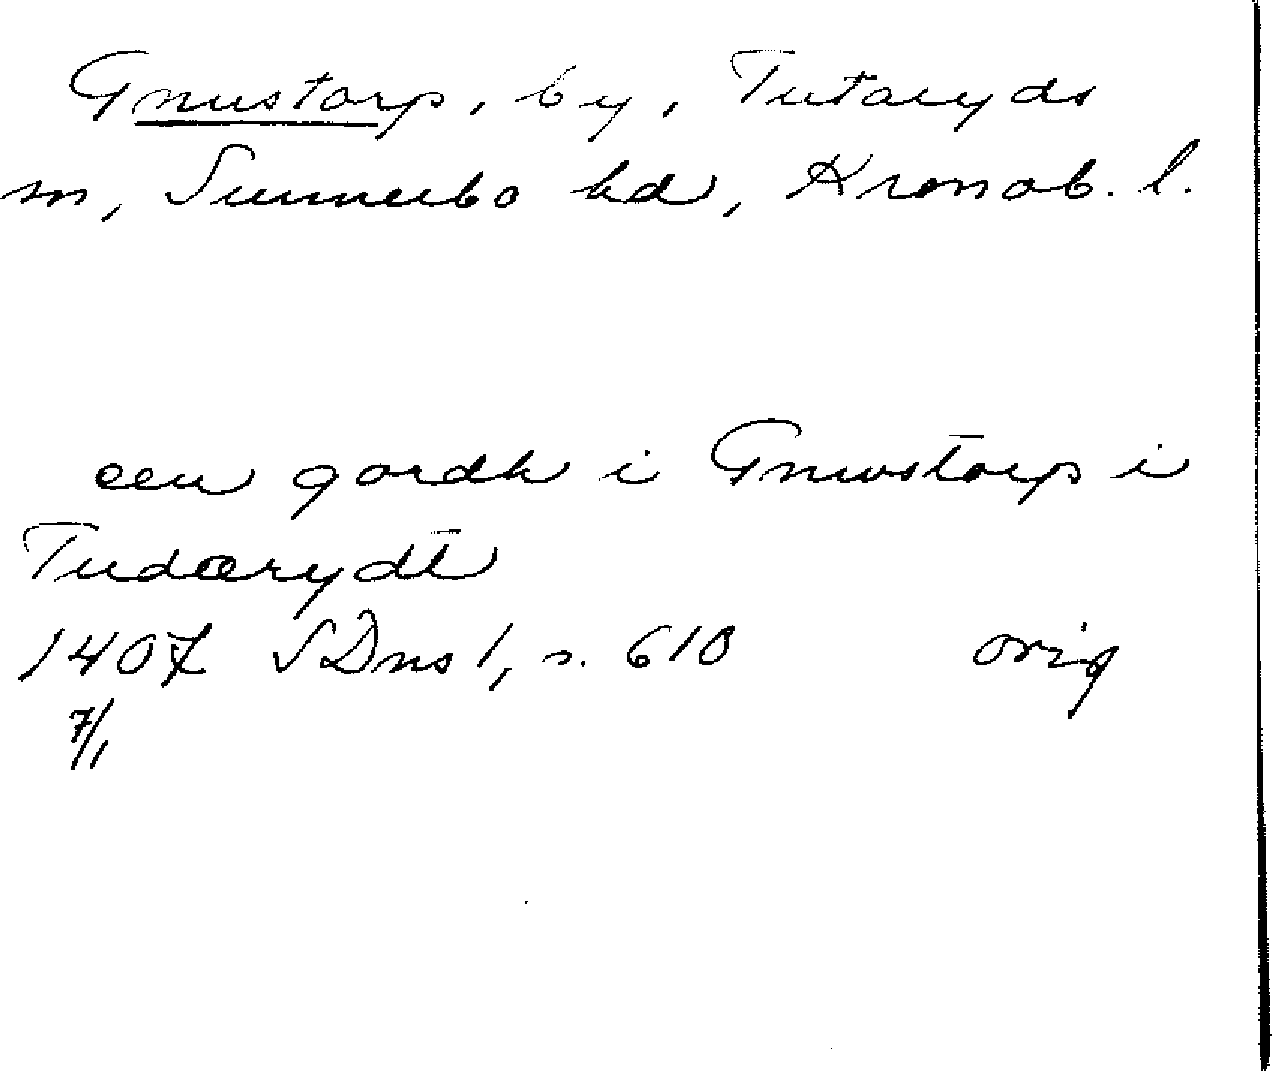 Gnustorp, by, Tutaryds
sn, Sunnerbo hd, Kronob. l.
een gardh i Gnwstorp i
Tudærydt
1407 SDns 1, s. 610 orig
7/1